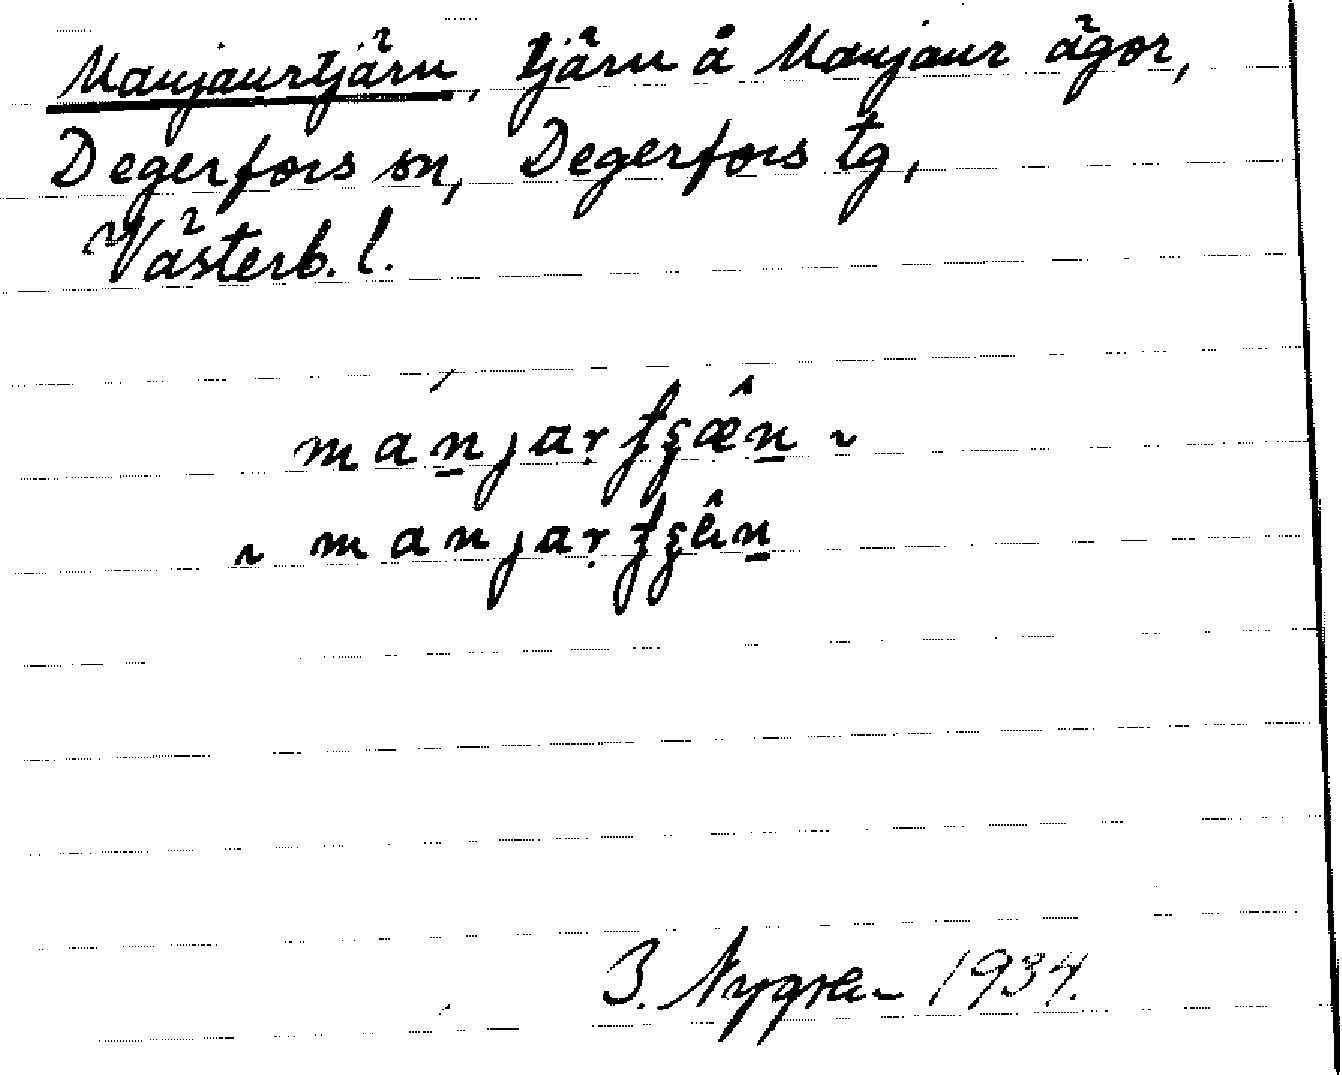 Manjaurtjärn, tjärn å Manjaur ägor,
Degerfors sn, Degerfors tg,
Västerb. l.
manjar
~ manjar
Nygren 1934.